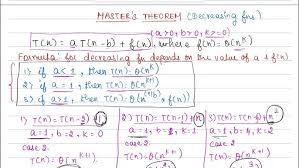 MASTER'S THEOREM (Decreasing fns)
(a>0, b>0, k>=0)
T(n) = a T(n-b) + f(n), where f(n) = Θ(n^k)
Formula for decreasing fn depends on the value of a & f(n)
1) if a<1, then T(n): Θ(n^k)
2) if a=1, then T(n): Θ(n^k+1)
3) if a>1, then T(n): Θ(n^k
1) T(n) = T(n-2)+1
a=1, b=2, k=0
case 2.
T(n): Θ(n^k+1)
2) T(n) = T(n-2)+n
a=1, b=2, k=1
case 2
T(n): Θ(n^k+1)
3) T(n) = T(n-2)+n²
a=1, b=2, k=2
Case 2.
T(n) = Θ(n^k+1)